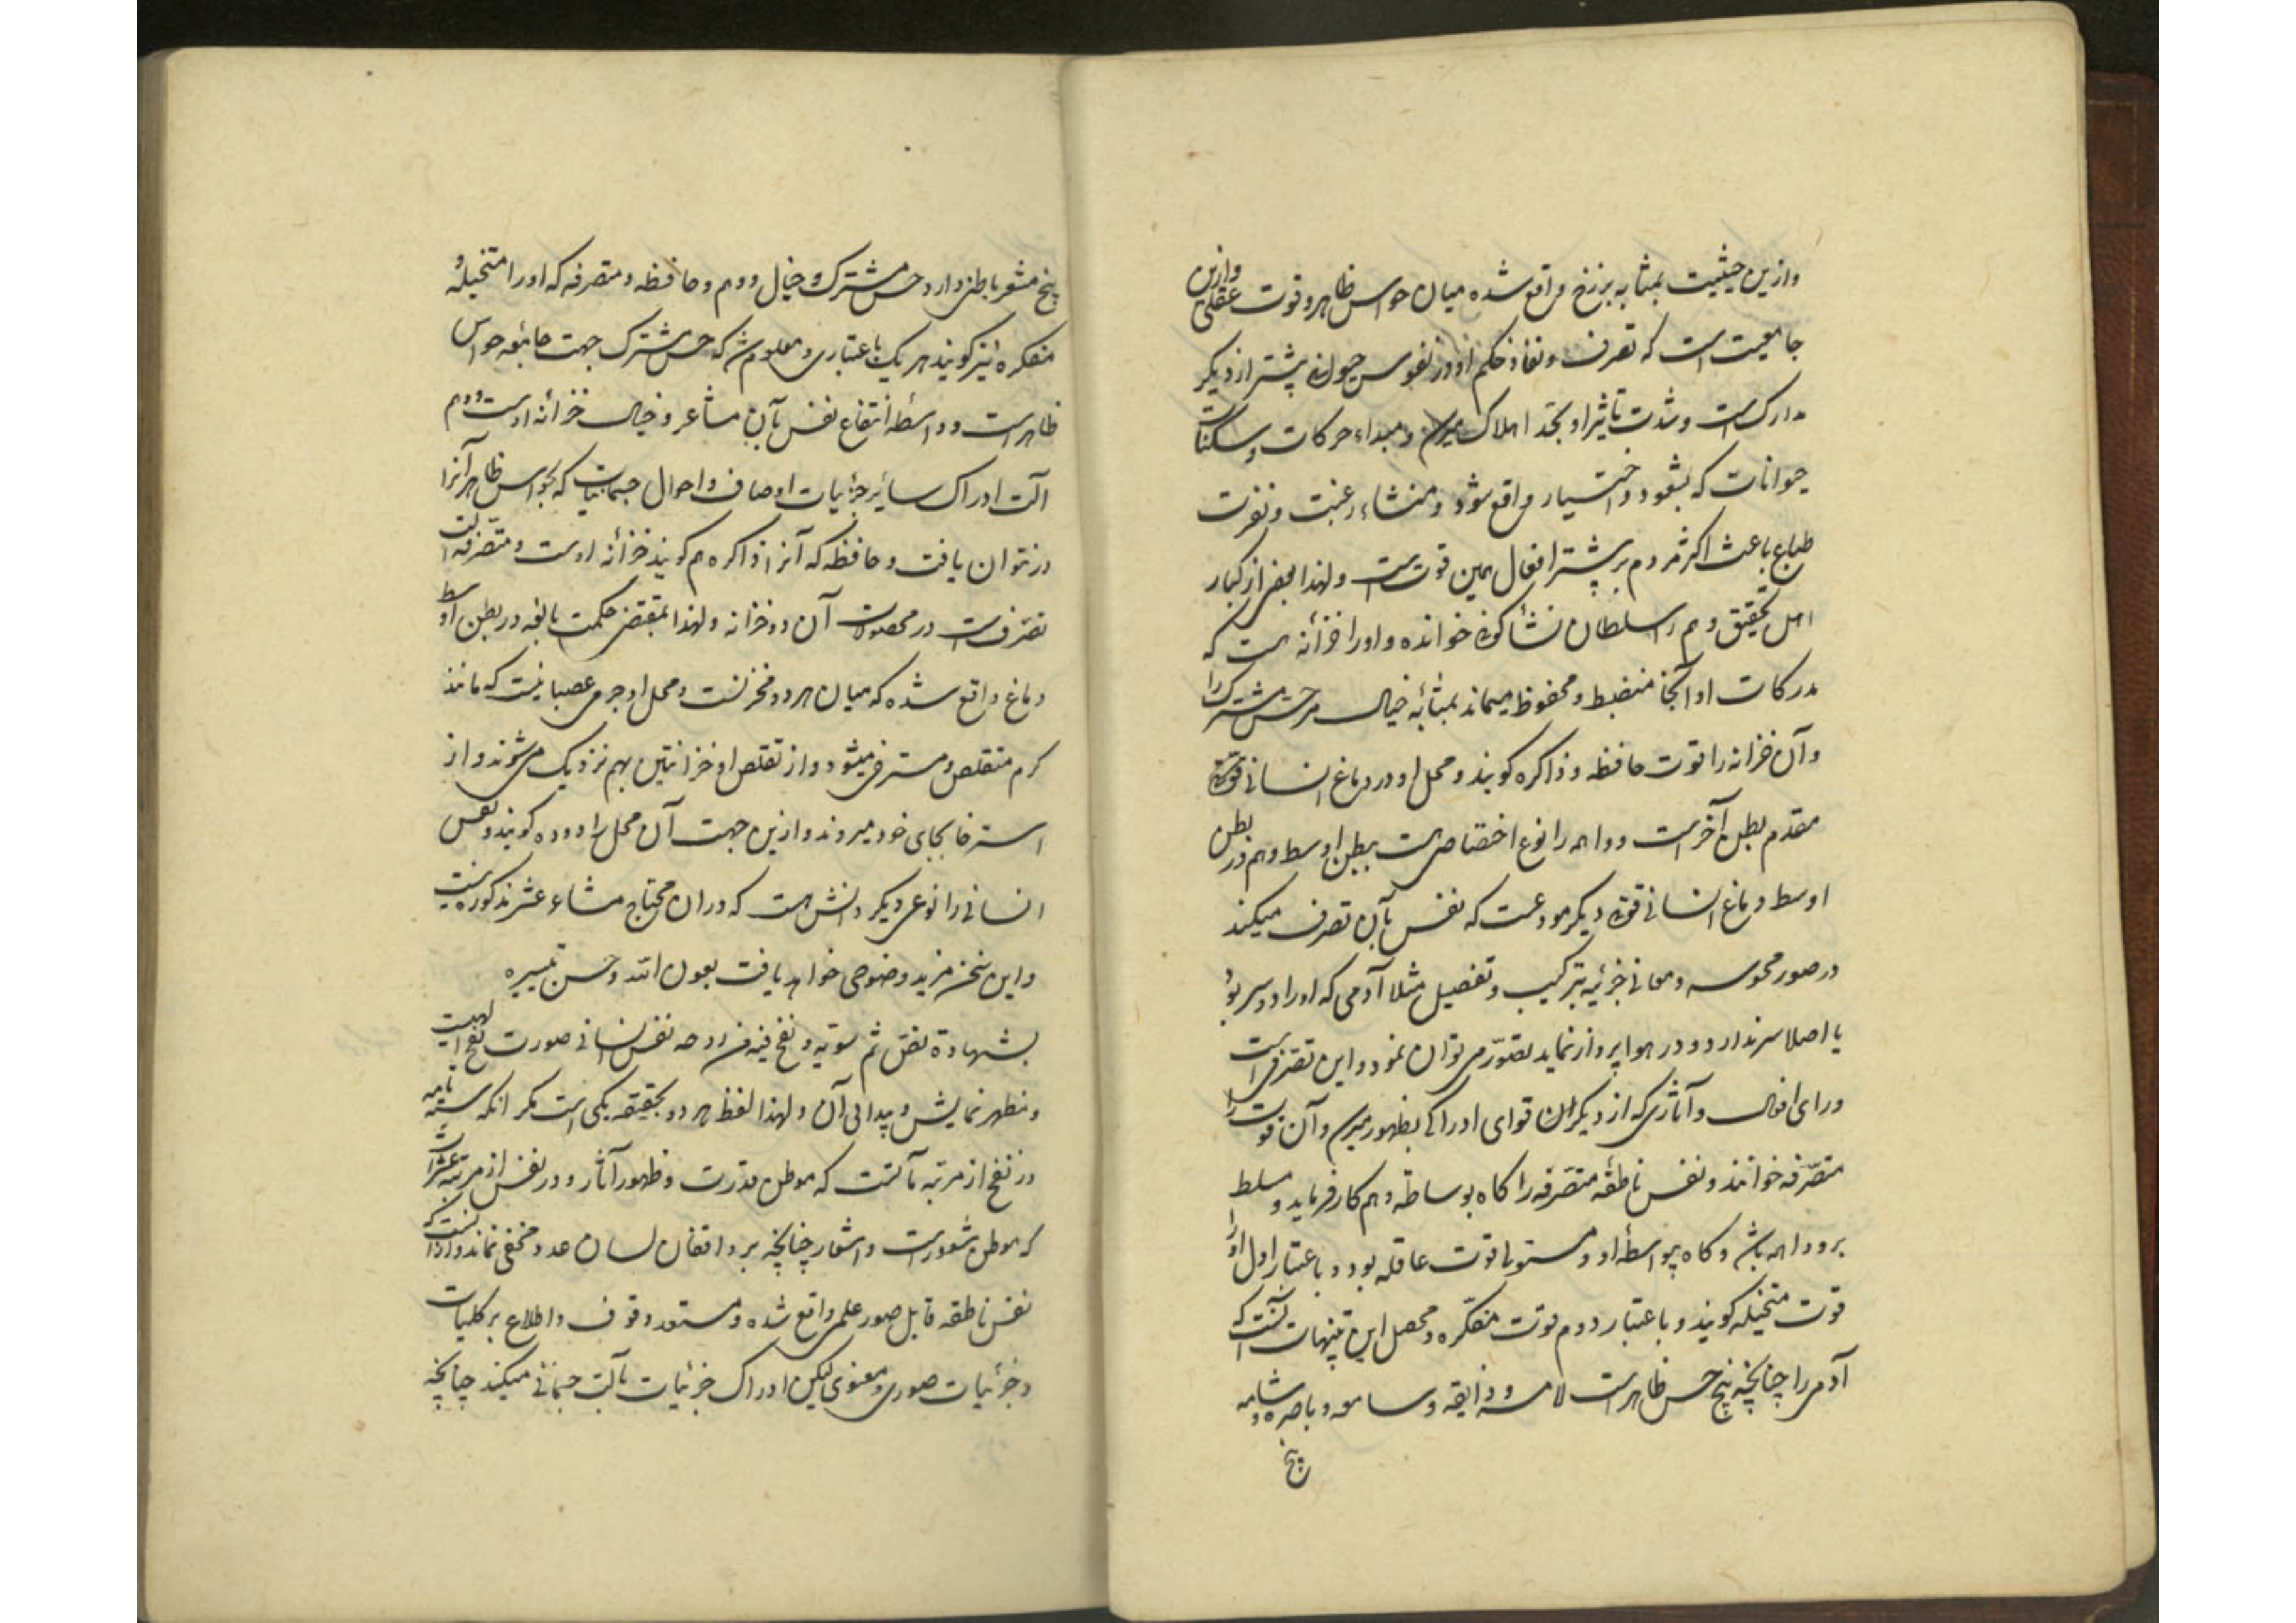 وازین حیثیت بمثابه برزخ واقع شده میان حواس ظاهر و قوت عقلی وازین
جامعیت است که تصرف و نفاذ حکم او در نفوس حیوانی پیشتر از دیگر
مدارک است و شدت تاثیر او بحد اهلاک میرسد و مبداء حرکات و سکنات
حیوانات که بشعور و اختیار واقع شود و منشاء رغبت و نفرت
طباع باعث اکثر مردم بر پیشتر افعال همین قوت است و لهذا بعضی از کبار
اهل تحقیق وهم را سلطان نشأ کونی خوانده و اورا خزانه هست که
مدرکات او آنجا منضبط و محفوظ میماند بمثابه خیال مر حس مشترک را
وآن خزانه را قوت حافظه و ذاکره کویند و محل او در دماغ انسانی
مقدم بطن آخر است و واهمه را نوع اختصاصی هست ببطن اوسط و هم در بطن
اوسط دماغ انسانی قوة دیکر مودعست که نفس بآن تصرف میکند
در صور محسوسه و معانی جزئیه بترکیب و تفصیل مثلا آدمی که اورا دو سر بود
یا اصلا سر ندارد و در هوا پرواز نماید تصور می توان نمود و این تصرفی است
ورای افعال و آثاری که از دیکران قوای ادراکی بظهور میرسد و آن قوت را
متصرفه خوانند و نفس ناطقه متصرفه را کاه بوساطة وهم کار فرماید و مسلط
برو واهمه باشد و کاه بواسطه او و مستولی قوت عاقله بود و باعتبار اول اورا
قوت متخیله کویند و باعتبار دوم قوت متفکره و محصل این تنبیهات آنست که
آدمی را چنانچه پنج حس ظاهر است لامسه و ذایقه و سامعه و باصره و شامه
پنج
پنج مشعر باطنی دارد حس مشترک و خیال و وهم و حافظه و متصرفه که اورا متخیله و
متفکره نیز کویند هر یک باعتباری و معلوم شد که حس مشترک جهت جامعه حواس
ظاهر است و واسطه انتفاع نفس بآن مشاعر و خیال خزانه اوست و وهم
آلت ادراک سایر جزئیات اوصاف و احوال جسمانیات که بحواس ظاهر آنرا
در نتوان یافت و حافظه که آنرا ذاکره هم کویند خزانه اوست و متصرفه آلت
تصرف است در محصولات آن دو خزانه و لهذا بمقتضی حکمت بالغه در بطن اوسط
دماغ واقع شده که میان هر دو مخزنست و محل او جرمی عصبانیست که مانند
کرم متقلص و مسترخی میشود و از تقلص او خزانتین بهم نزدیک می شوند و از
استرخا بجای خود میروند و ازین جهت آن محل را دوده کویند و نفس
انسانی را نوعی دیکر دانش هست که در ان محتاج مشاعر عشر مذکوره نیست
و این سخن مزید وضوحی خواهد یافت بعون الله و حسن تیسیره
بشهادة نص ثم سویه و نفخ فیه من روحه نفس انسانی صورت نفخ الهیست
و مظهر نمایش و پیدائی آن و لهذا لفظ هر دو بحقیقة یکی است مکر انکه تسمیه
در نفخ از مرتبه مآتست که موطن قدرت و ظهور آثار و در نفس از مرتبه عشرات
که موطن شعور است و اشعار چنانچه بر واقفان لسان عدد مخفی نماند و ازانست که
نفس ناطقه قابل صور علمی واقع شده و مستعد وقوف و اطلاع بر کلیات
و جزئیات صوری و معنوی لیکن ادراک جزئیات بآلت جسمانی میکند چنانچه